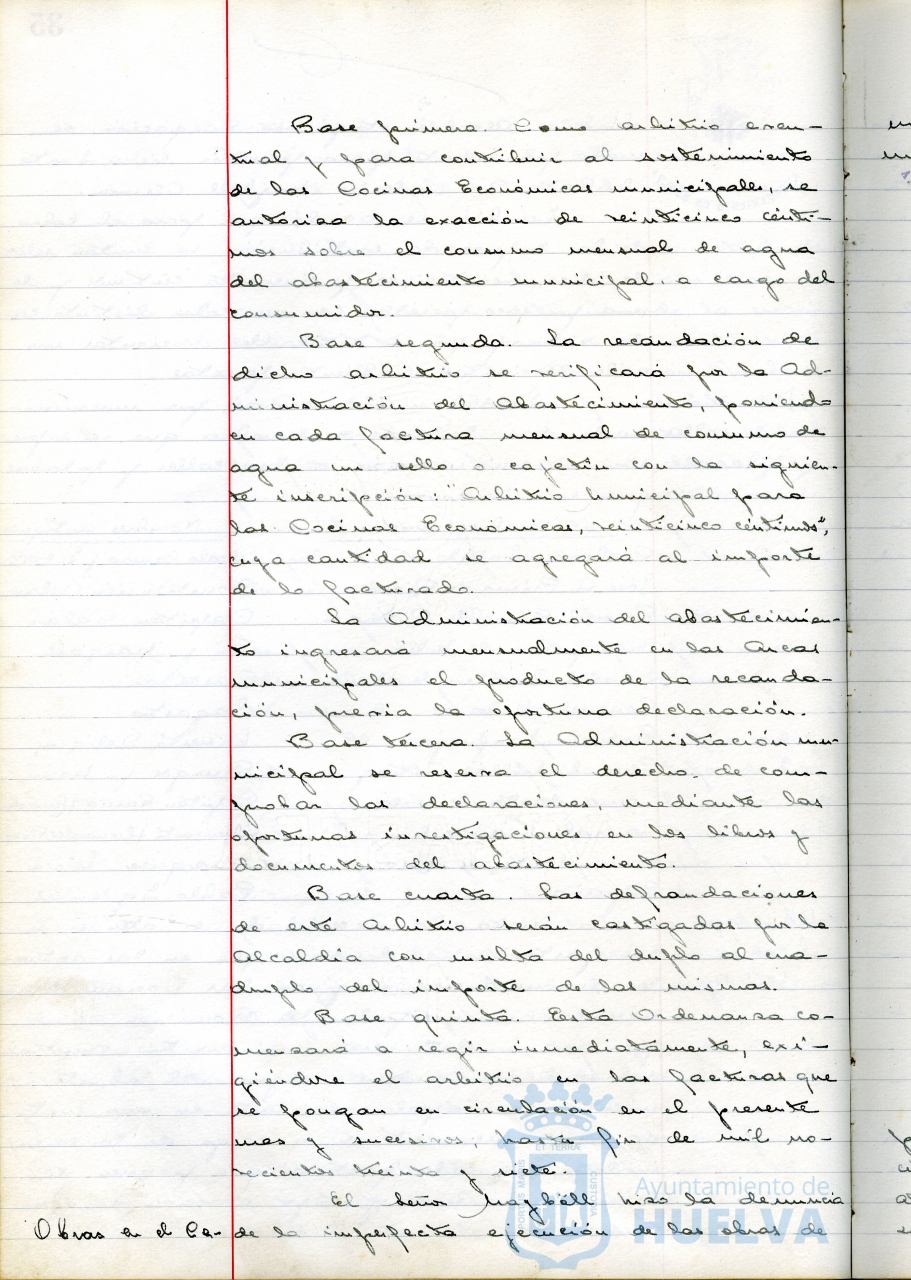 Base primera. Como arbitrio even-
tual y para contribuir al sostenimiento
de las Cocinas Económicas municipales, se
autoriza la exacción de veinticinco cénti-
mos sobre el consumo mensual de agua
del abastecimiento municipal, a cargo del
consumidor.
Base segunda. La recaudación de
dicho arbitrio se verificará por la Ad-
ministración del Abastecimiento, poniendo
en cada factura mensual de consumo de
agua un sello o cajetín con la siguien-
te inscripción: "Arbitrio municipal para
las Cocinas Económicas, veinticinco céntimos",
cuya cantidad se agregará al importe
de lo facturado.
La Administración del abastecimien-
to ingresará mensualmente en las Arcas
municipales el producto de la recauda-
ción, previa la oportuna declaración.
Base tercera. La Administración mu-
nicipal se reserva el derecho de com-
probar las declaraciones, mediante las
oportunas investigaciones en los libros y
documentos del abastecimiento.
Base cuarta. Las defraudaciones
de este Arbitrio serán castigadas por la
Alcaldía con multa del duplo al cua-
druplo del importe de las mismas.
Base quinta. Esta Ordenanza co-
menzará a regir inmediatamente, exi-
giéndose el arbitrio en las facturas que
se pongan en circulación en el presente
mes y sucesivos, hasta fin de mil no-
vecientos treinta y siete.
El Señor hizo la denuncia
Obras en el Ca- de la imperfecta ejecución de las obras de
Ayuntamiento de
HUELVA